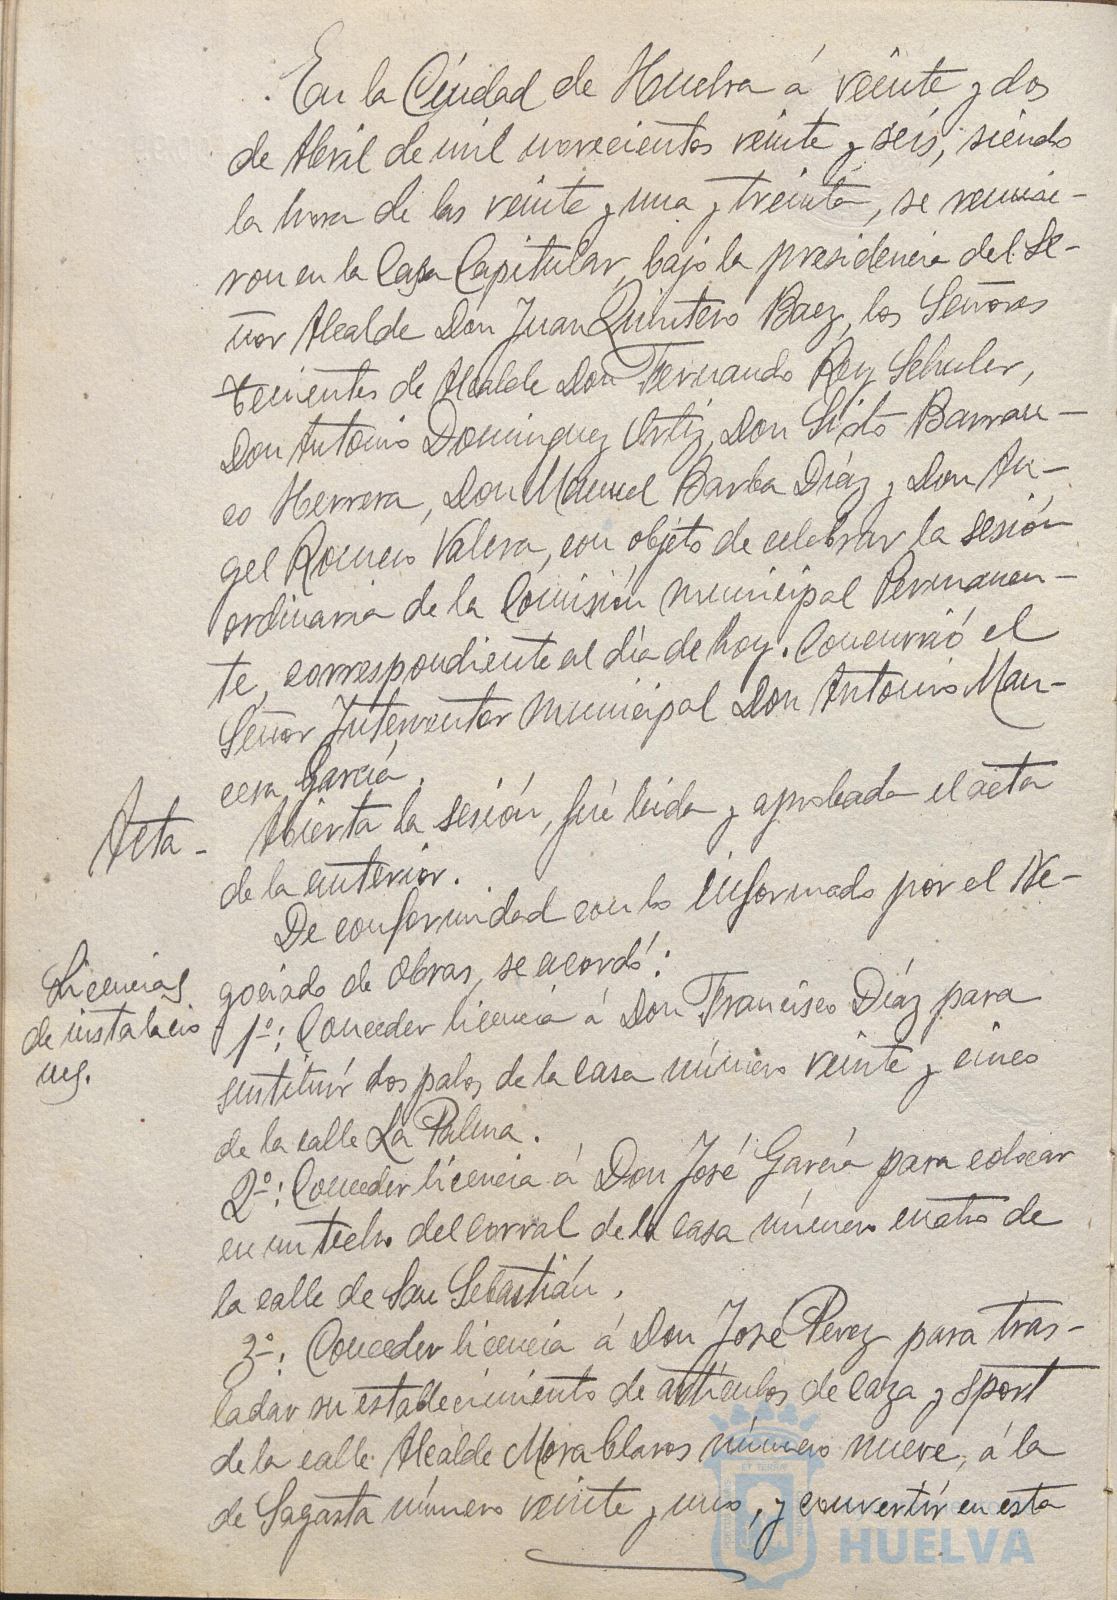 En la Ciudad de Huelva á veinte y dos
de Abril de mil novecientos veinte y seis, siendo
la hora de las veinte y una y treinta, se reunie-
ron en la Casa Capitular, bajo la presidencia del Se-
ñor Alcalde Don Juan Quintero Baez, los Señores
tenientes de Alcalde Don Fernando Rey Schuler,
Don Antonio Dominguez Ortiz, Don Sixto Barran-
co Herrera, Don Manuel Barba Díaz y Don An-
gel Romero Valera, con objeto de celebrar la sesión
ordinaria de la Comisión municipal Permanen-
te, correspondiente al día de hoy. Concurrió el
Señor Interventor municipal Don Antonio Man-
cera García.
Acta- Abierta la sesión, fué leida y aprobada el acta
de la anterior.
De conformidad con lo informado por el Ne-
gociado de Obras, se acordó:
Licencias
de instalacio
nes.
1º: Conceder licencia á Don Francisco Díaz para
sustituir dos palos de la casa número veinte y cinco
de la calle La Palma.
2º: Conceder licencia á Don José García para colocar
en un techo del corral de la casa número cuatro de
la calle de San Sebastián.
3º: Conceder licencia á Don José Perez para tras-
ladar su establecimiento de artículos de caza y sport
de la calle Alcalde Mora Claros número nueve, á la
de Sagasta número veinte y uno, y convertir en esta
HUELVA